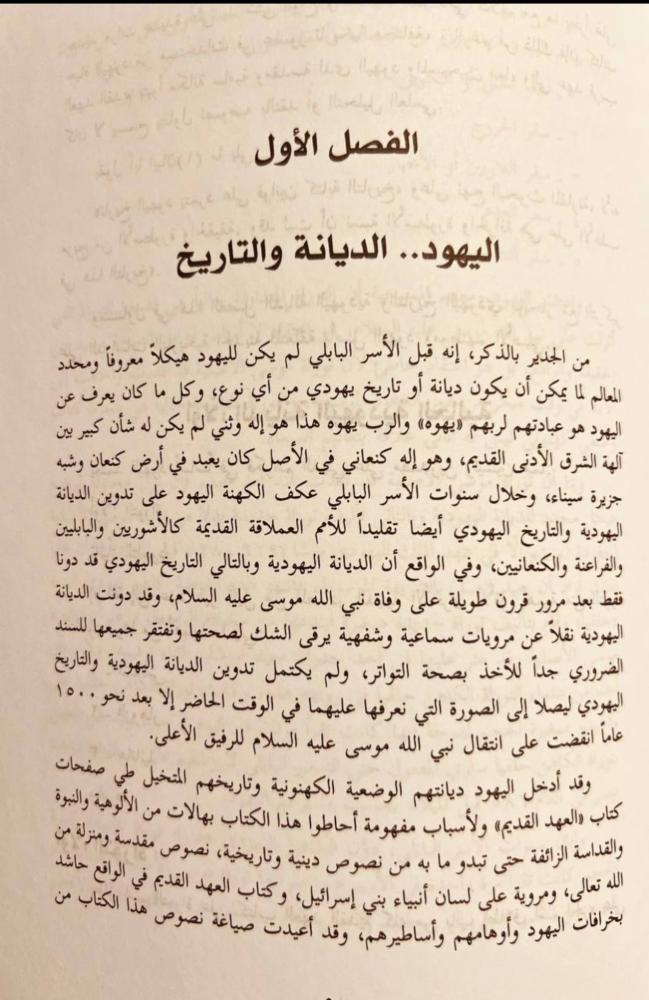 الفصل الأول
اليهود.. الديانة والتاريخ
من الجدير بالذكر، إنه قبل الأسر البابلي لم يكن لليهود هيكلاً معروفاً ومحدد
المعالم لما يمكن أن يكون ديانة أو تاريخ يهودي من أي نوع، وكل ما كان يعرف عن
اليهود هو عبادتهم لربهم «يهوه» والرب يهوه هذا هو إله وثني لم يكن له شأن كبير بين
آلهة الشرق الأدنى القديم، وهو إله كنعاني في الأصل كان يعبد في أرض كنعان وشبه
جزيرة سيناء، وخلال سنوات الأسر البابلي عكف الكهنة اليهود على تدوين الديانة
اليهودية والتاريخ اليهودي أيضا تقليداً للأمم العملاقة القديمة كالأشوريين والبابليين
والفراعنة والكنعانيين، وفي الواقع أن الديانة اليهودية وبالتالي التاريخ اليهودي قد دونا
فقط بعد مرور قرون طويلة على وفاة نبي الله موسى عليه السلام، وقد دونت الديانة
اليهودية نقلاً عن مرويات سماعية وشفهية يرقى الشك لصحتها وتفتقر جميعها للسند
الضروري جداً للأخذ بصحة التواتر، ولم يكتمل تدوين الديانة اليهودية والتاريخ
اليهودي ليصلا إلى الصورة التي نعرفها عليهما في الوقت الحاضر إلا بعد نحو ١٥٠٠
عاماً انقضت على انتقال نبي الله موسى عليه السلام للرفيق الأعلى.
وقد أدخل اليهود ديانتهم الوضعية الكهنونية وتاريخهم المتخيل طي صفحات
كتاب «العهد القديم» ولأسباب مفهومة أحاطوا هذا الكتاب بهالات من الألوهية والنبوة
والقداسة الزائفة حتى تبدو ما به من نصوص دينية وتاريخية، نصوص مقدسة ومنزلة من
الله تعالى، ومروية على لسان أنبياء بني إسرائيل، وكتاب العهد القديم في الواقع حاشد
بخرافات اليهود وأوهامهم وأساطيرهم، وقد أعيدت صياغة نصوص هذا الكتاب من